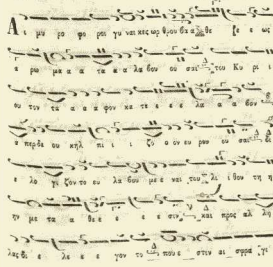 Αι μυ ρο φο ροι γυ ναι κες ορ θρου βα α θε ε ως
α ρω μα α τα α λα βου ου σαι του Κυ ρι ι
ου τον τα α α φον κα τε ε ε λα α α βον
α περ δε ου κηλ πι ι ι ζο ον ευ ρου ου σαι δι
ε λο γι ζον το ευ λα βου με ναι του λι θου τη η
ην με τα α θε ε ε ε σιν και προς αλ λη
λας δι ε λε ε ε γον το που ε στιν αι σφρα γι